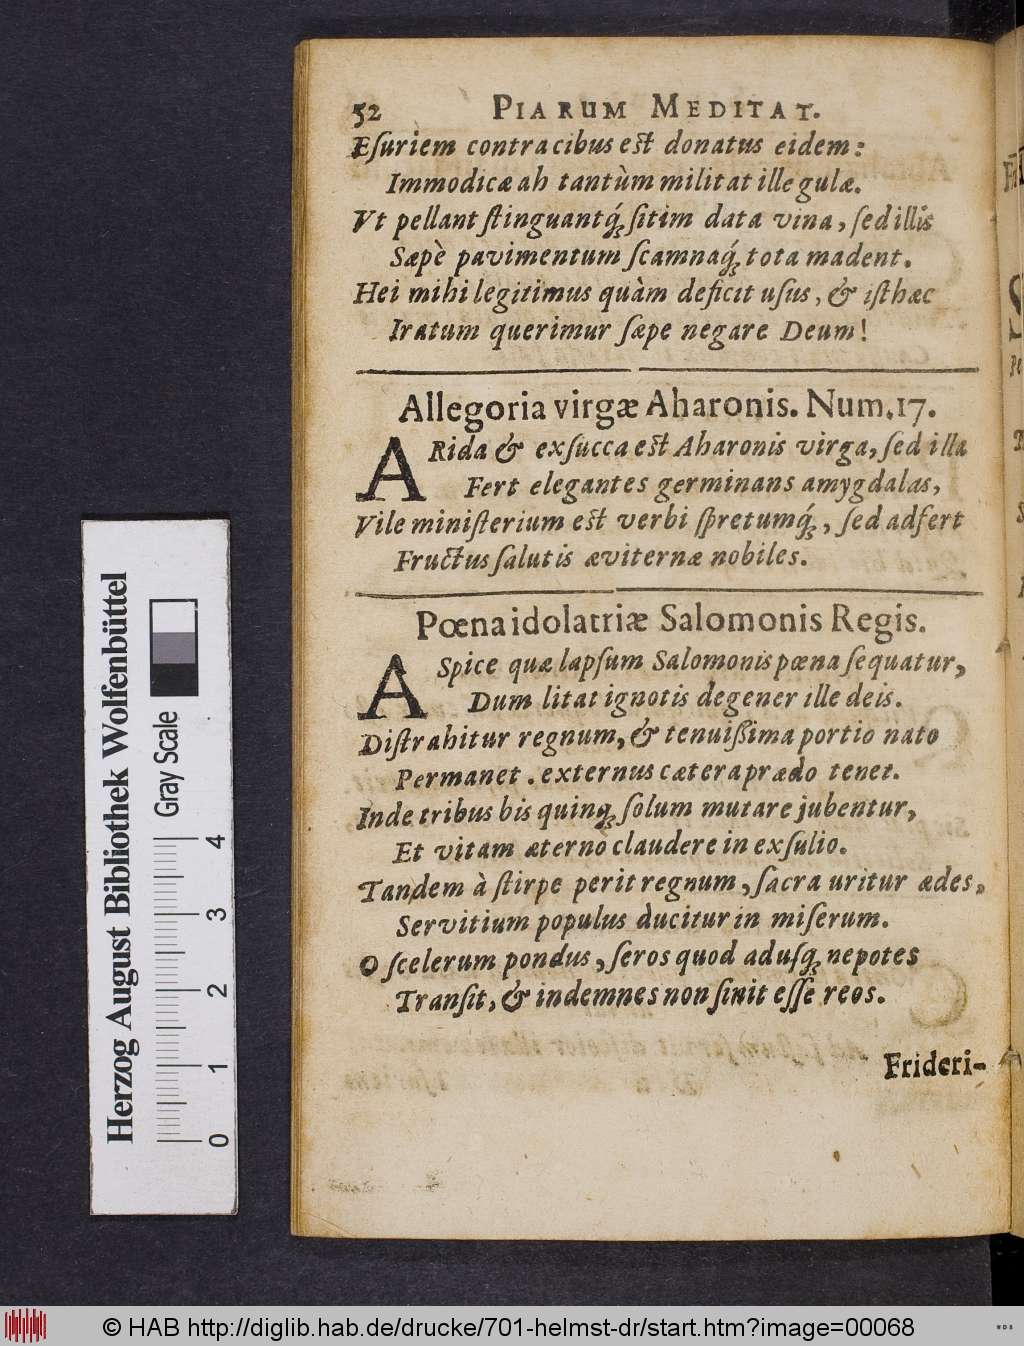 52 PIARUM MEDITAT.
Eſuriem contra cibus est donatus eidem:
Immodicæ ah tantùm militat ille gulæ.
Vt pellant ſtinguantq́; ſitim data vina, ſed illis
Sæpè pavimentum ſcamnaq́; tota madent.
Hei mihi legitimus quàm deficit uſus, & iſthæc
Iratum querimur ſæpe negare Deum!
Allegoria virgæ Aharonis. Num. 17.
ARida & exſucca est Aharonis virga, ſed illa
Fert elegantes germinans amygdalas,
Vile miniſterium est verbi ſpretumq́;, ſed adfert
Fructus ſalutis æviternæ nobiles.
Pœna idolatriæ Salomonis Regis.
ASpice quæ lapſum Salomonis pœna ſequatur,
Dum litat ignotis degener ille deis.
Diſtrahitur regnum, & tenuißima portio nato
Permanet. externus cætera prædo tenet.
Inde tribus bis quinq; ſolum mutare jubentur,
Et vitam æterno claudere in exſulio.
Tandem à ſtirpe perit regnum, ſacra uritur ædes,
Servitium populus ducitur in miſerum.
O ſcelerum pondus, ſeros quod aduſq; nepotes
Tranſit, & indemnes non ſinit eſſe reos.
Frideri-
Herzog August Bibliothek Wolfenbüttel
Gray Scale
0 1 2 3 4
© HAB http://diglib.hab.de/drucke/701-helmst-dr/start.htm?image=00068